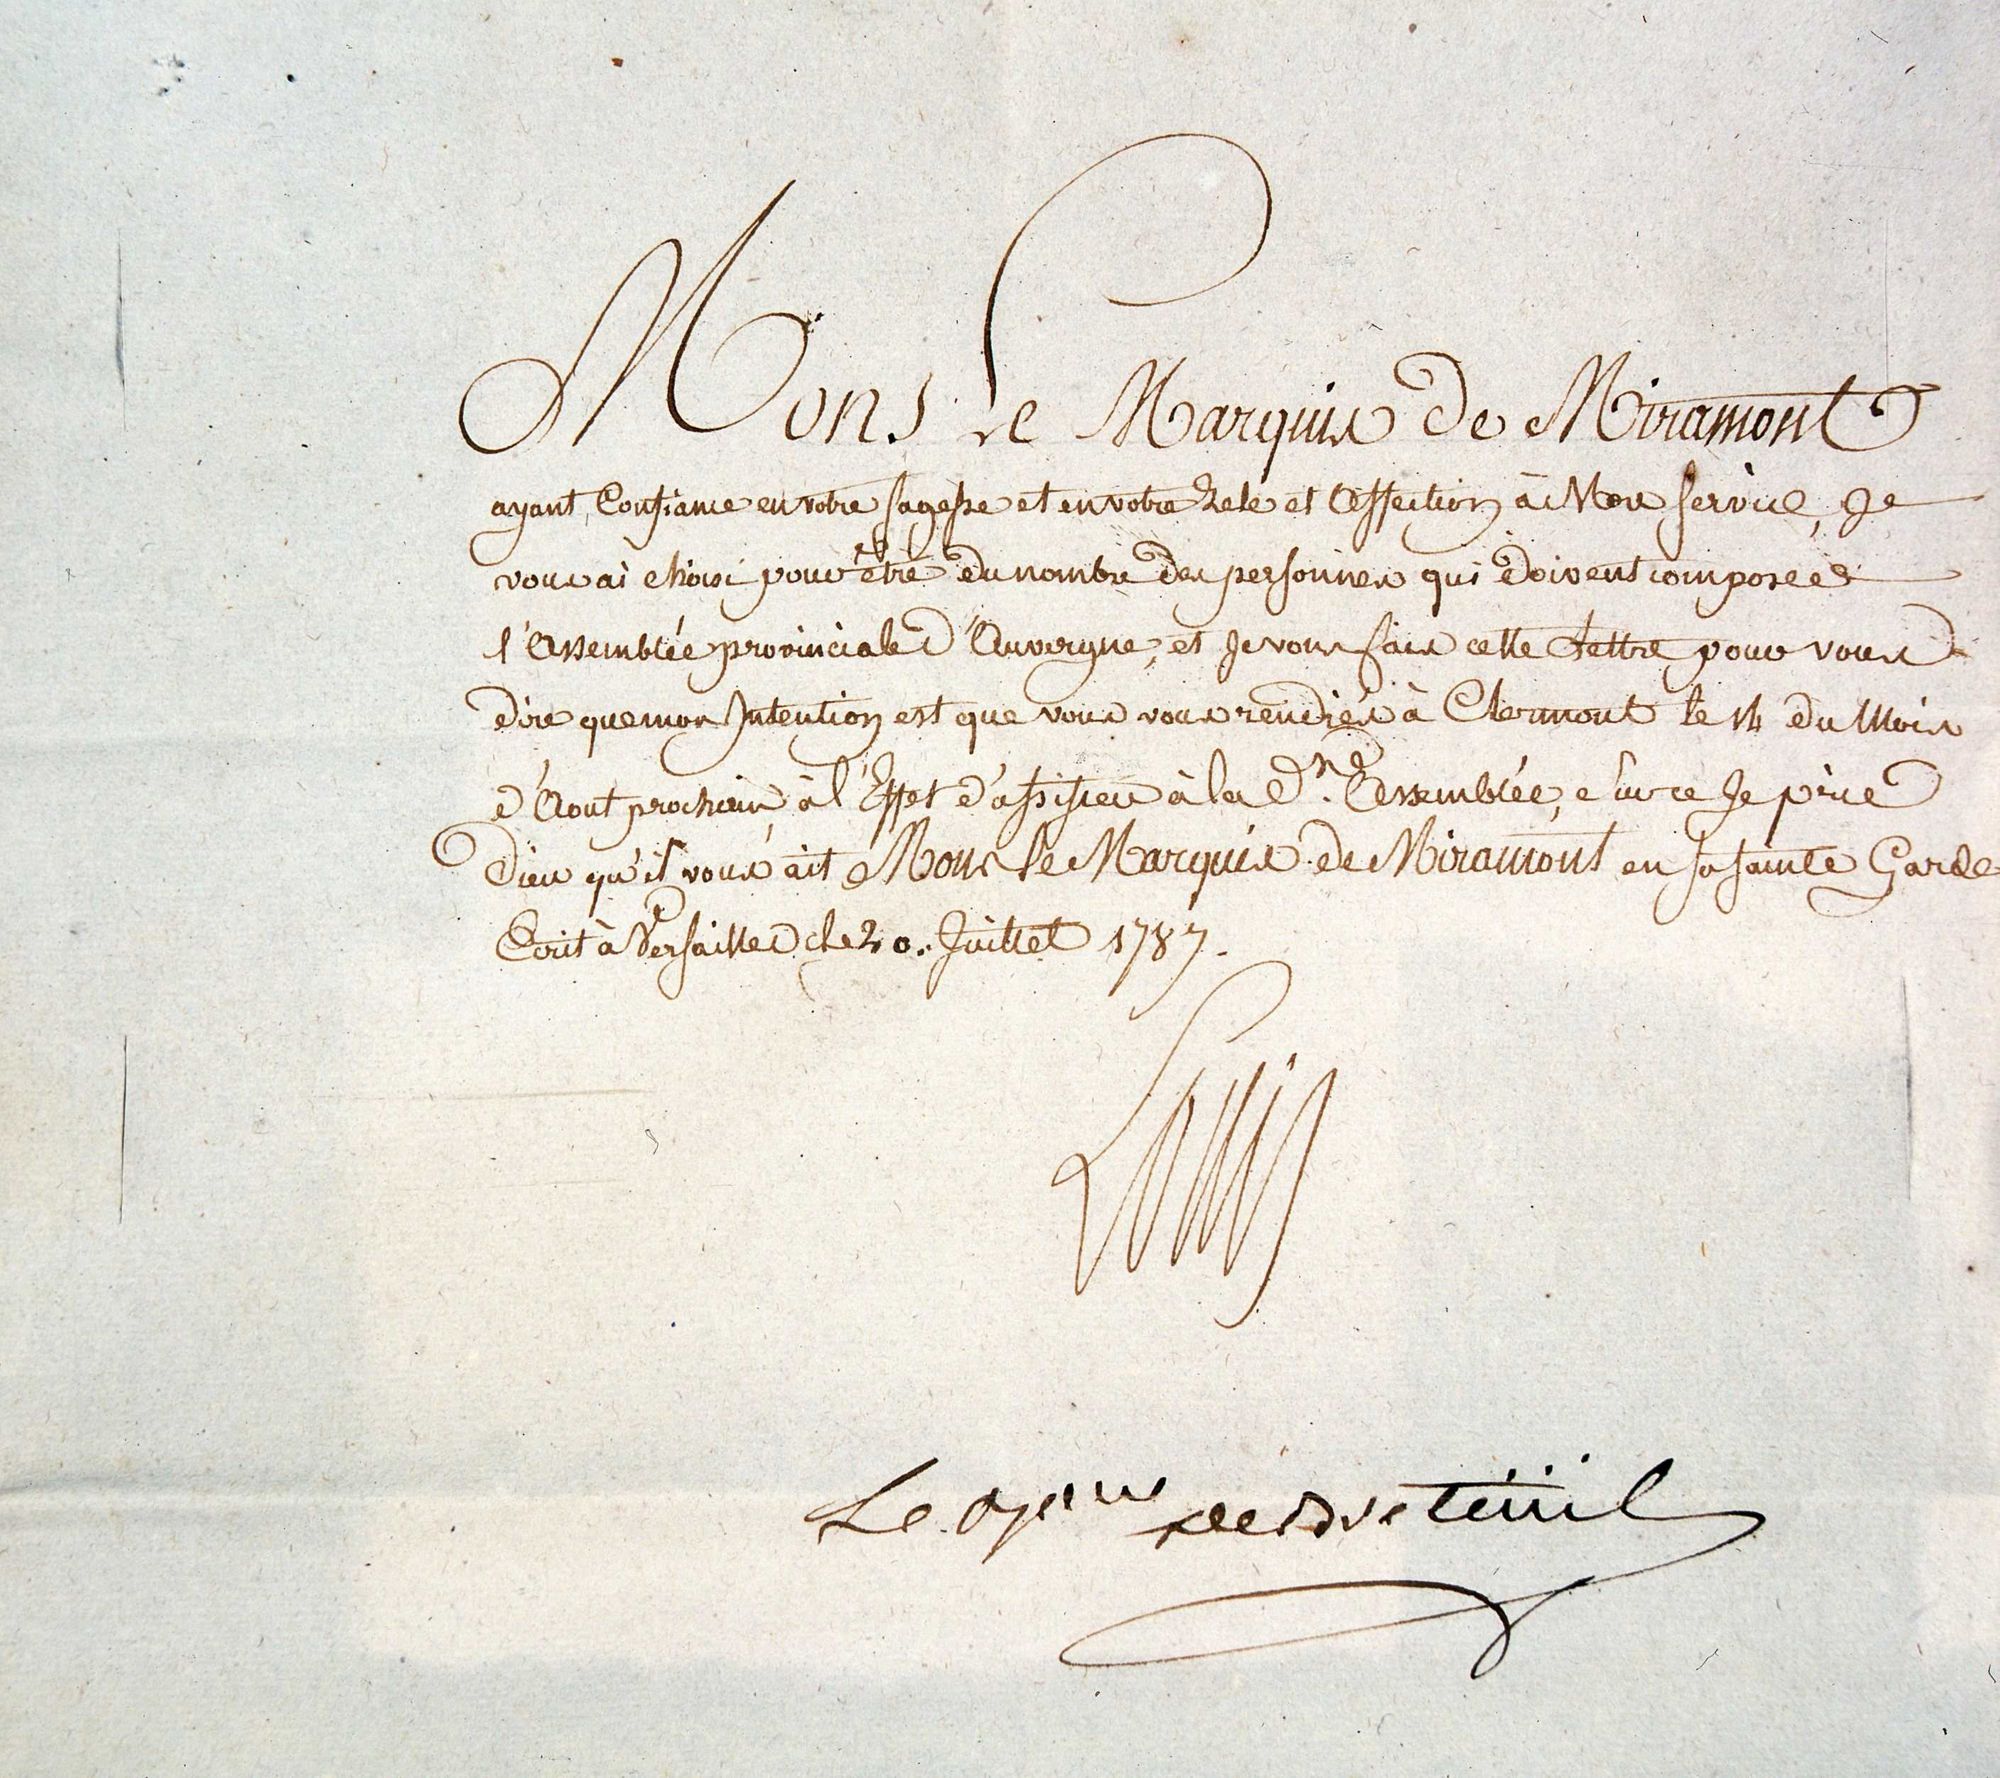 Mons. le Marquis de Miramont
ayant Confiance en votre Sagesse et en votre Zele et Affection à Mon Service, Je
vous ai choisi pour être du nombre des personnes qui doivent composer
l'Assemblée provinciale d'Auvergne, et Je vous fais cette Lettre pour vous
dire que mon Intention est que vous vous rendiés à Clermont le 14 du Mois
d'Aout prochain, à l'Effet d'assister à la d.ne Assemblée, Sur ce Je prie
Dieu qu'il vous ait Mons le Marquis de Miramont en sa sainte Garde
Ecrit à Versailles le 20. Juillet 1787.
Louis
Le de Breteüil